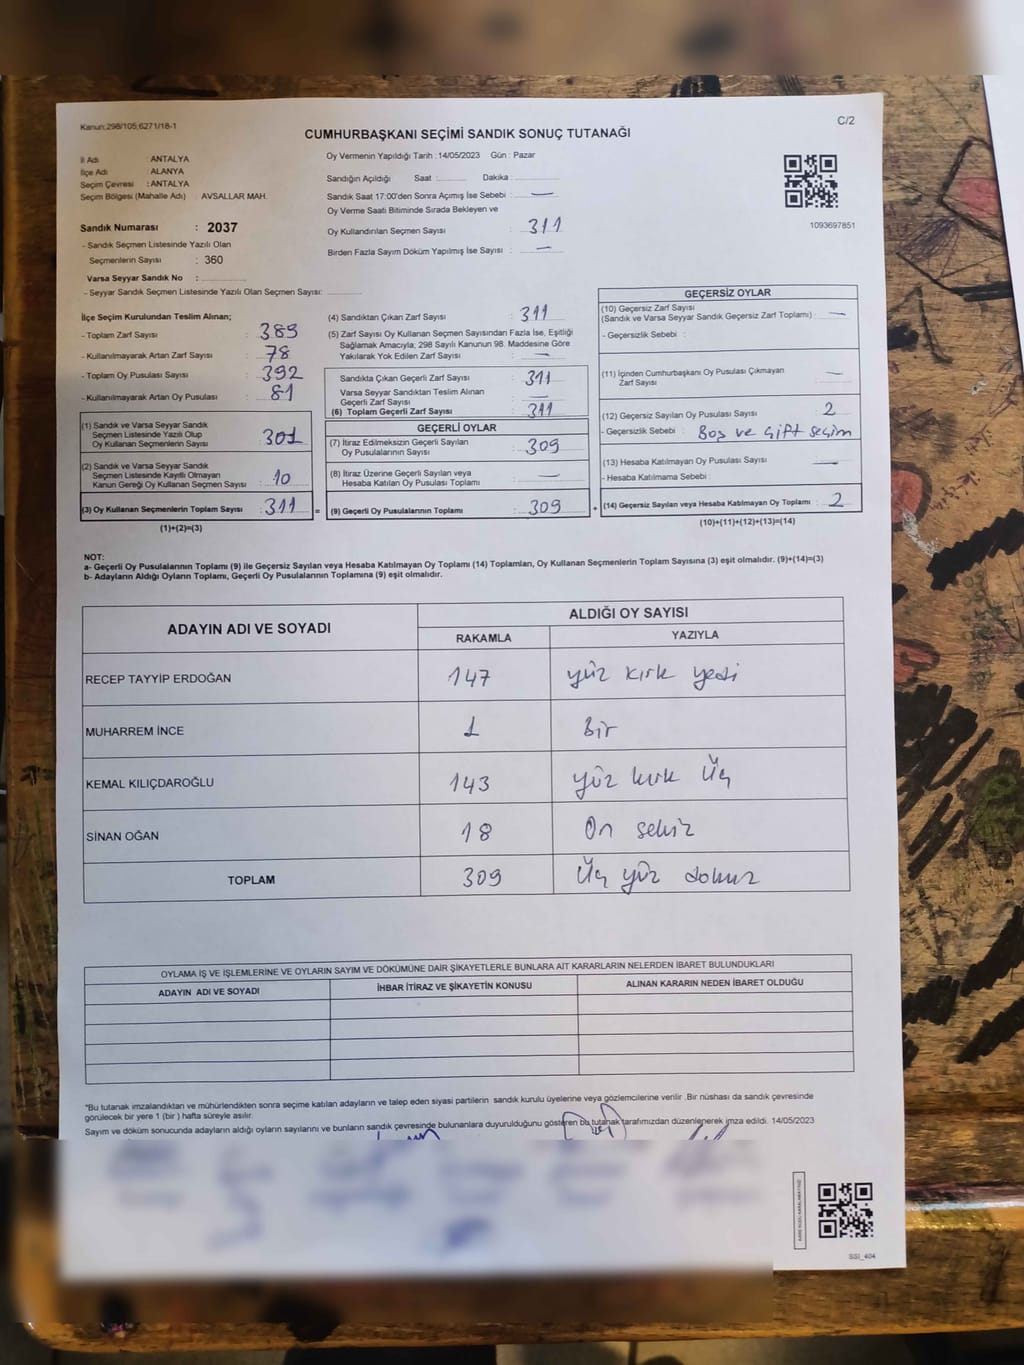 Kanun:298/105;6271/18-1
C/2
CUMHURBAŞKANI SEÇİMİ SANDIK SONUÇ TUTANAĞI
İl Adı : ANTALYA
İlçe Adı : ALANYA
Seçim Çevresi : ANTALYA
Seçim Bölgesi (Mahalle Adı) AVSALLAR MAH.
Sandık Numarası : 2037
- Sandık Seçmen Listesinde Yazılı Olan
Seçmenlerin Sayısı : 360
Varsa Seyyar Sandık No :
- Seyyar Sandık Seçmen Listesinde Yazılı Olan Seçmen Sayısı:
Oy Vermenin Yapıldığı Tarih :14/05/2023 Gün : Pazar
Sandığın Açıldığı Saat : Dakika :
Sandık Saat 17:00'den Sonra Açımış İse Sebebi : —
Oy Verme Saati Bitiminde Sırada Bekleyen ve
Oy Kullandırılan Seçmen Sayısı : 311
Birden Fazla Sayım Döküm Yapılmış İse Sayısı : —
1093697851
İlçe Seçim Kurulundan Teslim Alınan;
- Toplam Zarf Sayısı : 389
- Kullanılmayarak Artan Zarf Sayısı : 78
- Toplam Oy Pusulası Sayısı : 392
- Kullanılmayarak Artan Oy Pusulası : 81
(1) Sandık ve Varsa Seyyar Sandık
Seçmen Listesinde Yazılı Olup
Oy Kullanan Seçmenlerin Sayısı : 301
(2) Sandık ve Varsa Seyyar Sandık
Seçmen Listesinde Kayıtlı Olmayan
Kanun Gereği Oy Kullanan Seçmen Sayısı : 10
(3) Oy Kullanan Seçmenlerin Toplam Sayısı : 311 =
(1)+(2)=(3)
(4) Sandıktan Çıkan Zarf Sayısı : 311
(5) Zarf Sayısı Oy Kullanan Seçmen Sayısından Fazla İse, Eşitliği
Sağlamak Amacıyla; 298 Sayılı Kanunun 98. Maddesine Göre
Yakılarak Yok Edilen Zarf Sayısı : —
Sandıkta Çıkan Geçerli Zarf Sayısı : 311
Varsa Seyyar Sandıktan Teslim Alınan
Geçerli Zarf Sayısı : —
(6) Toplam Geçerli Zarf Sayısı : 311
GEÇERLİ OYLAR
(7) İtiraz Edilmeksizin Geçerli Sayılan
Oy Pusulalarının Sayısı : 309
(8) İtiraz Üzerine Geçerli Sayılan veya
Hesaba Katılan Oy Pusulası Toplamı : —
(9) Geçerli Oy Pusulalarının Toplamı : 309 +
GEÇERSİZ OYLAR
(10) Geçersiz Zarf Sayısı
(Sandık ve Varsa Seyyar Sandık Geçersiz Zarf Toplamı) : —
- Geçersizlik Sebebi :
(11) İçinden Cumhurbaşkanı Oy Pusulası Çıkmayan
Zarf Sayısı : —
(12) Geçersiz Sayılan Oy Pusulası Sayısı : 2
- Geçersizlik Sebebi : Boş ve Çift seçim
(13) Hesaba Katılmayan Oy Pusulası Sayısı : —
- Hesaba Katılmama Sebebi :
(14) Geçersiz Sayılan veya Hesaba Katılmayan Oy Toplamı : 2
(10)+(11)+(12)+(13)=(14)
NOT:
a- Geçerli Oy Pusulalarının Toplamı (9) ile Geçersiz Sayılan veya Hesaba Katılmayan Oy Toplamı (14) Toplamları, Oy Kullanan Seçmenlerin Toplam Sayısına (3) eşit olmalıdır. (9)+(14)=(3)
b- Adayların Aldığı Oyların Toplamı, Geçerli Oy Pusulalarının Toplamına (9) eşit olmalıdır.
ADAYIN ADI VE SOYADI
ALDIĞI OY SAYISI
RAKAMLA YAZIYLA
RECEP TAYYİP ERDOĞAN 147 yüz kırk yedi
MUHARREM İNCE 1 Bir
KEMAL KILIÇDAROĞLU 143 yüz kırk üç
SİNAN OĞAN 18 On sekiz
TOPLAM 309 Üç yüz dokuz
OYLAMA İŞ VE İŞLEMLERİNE VE OYLARIN SAYIM VE DÖKÜMÜNE DAİR ŞİKAYETLERLE BUNLARA AİT KARARLARIN NELERDEN İBARET BULUNDUKLARI
ADAYIN ADI VE SOYADI İHBAR İTİRAZ VE ŞİKAYETİN KONUSU ALINAN KARARIN NEDEN İBARET OLDUĞU
*Bu tutanak imzalandıktan ve mühürlendikten sonra seçime katılan adayların ve talep eden siyasi partilerin sandık kurulu üyelerine veya gözlemcilerine verilir .Bir nüshası da sandık çevresinde
görülecek bir yere 1 (bir ) hafta süreyle asılır.
Sayım ve döküm sonucunda adayların aldığı oyların sayılarını ve bunların sandık çevresinde bulunanlara duyurulduğunu gösteren bu tutanak tarafımızdan düzenlenerek imza edildi. 14/05/2023
SSI_404